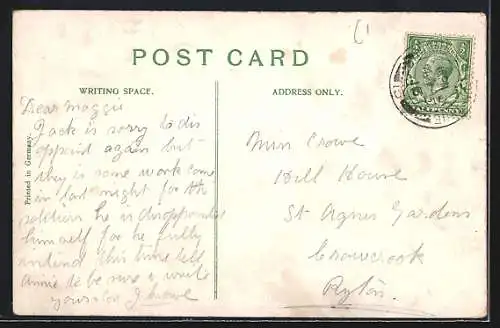 POST CARD
WRITING SPACE.
ADDRESS ONLY.
Printed in Germany.
Dear Maggie
Jack is sorry to dis
appoint again but
they is some work come
in last night for the
he is disappointed
himself for he fully
intend this time tell
Annie to be sure & write
yours J Crowe
Miss Crowe
Hill House
St Agnes Gardens
Crawcrook
Ryton.